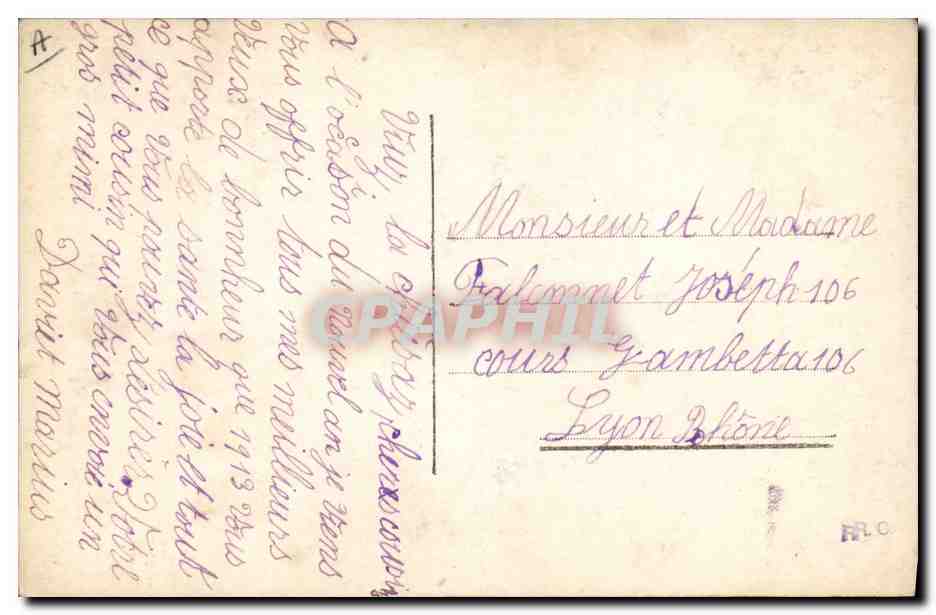 A
Vuz, la chiboz, chers cousin
A l'ocasion du nouvel an je viens
vous offrir tous mes meillieurs
veux de bonheur que 1913 vous
apporte la sante la joie et tout
ce que vous pouvez désirer Votre
petit cousin qui vous envoie un
gros mimi
Daviet Marius
Monsieur et Madame
Falconnet Joséph 106
cours Gambetta 106
Lyon Rhône
CPAPHIL
R. C.